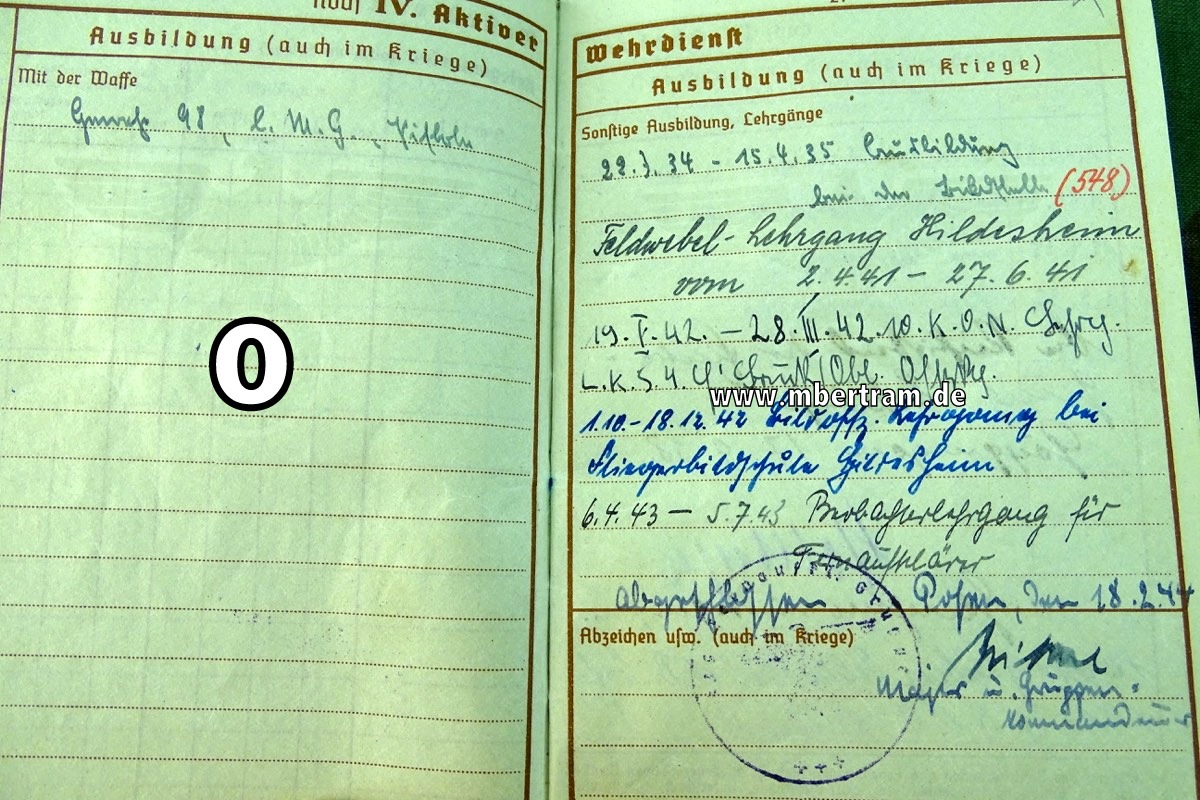 noch IV. Aktiver
Ausbildung (auch im Kriege)
Mit der Waffe
Gewehr 98, l. M. G., Pistole
0
Wehrdienst
Ausbildung (auch im Kriege)
Sonstige Ausbildung, Lehrgänge
22.3.34 - 15.4.35 Ausbildung
bei der Bildstelle (548)
Feldwebel-Lehrgang Hildesheim
vom 2.4.41 - 27.6.41
28.III.42 10. K.O.N. Lehrg.
L.K.S. 4
www.mbertram.de
1.10.-18.12.42 Bildoffz. Lehrgang bei
Fliegerbildschule Hildesheim
6.4.43 - 5.7.43 Beobachterlehrgang für
Fernaufklärer
abgeschlossen Posen, den 18.2.44
Abzeichen usw. (auch im Kriege)
Major u. Gruppen-
kommandeur